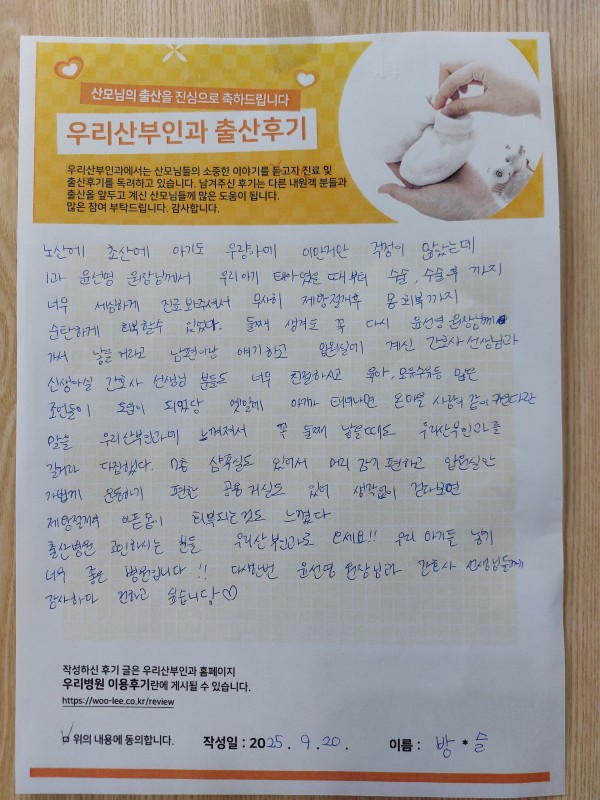 산모님의 출산을 진심으로 축하드립니다
우리산부인과 출산후기
우리산부인과에서는 산모님들의 소중한 이야기를 듣고자 진료 및
출산후기를 독려하고 있습니다. 남겨주신 후기는 다른 내원객 분들과
출산을 앞두고 계신 산모님들께 많은 도움이 됩니다.
많은 참여 부탁드립니다. 감사합니다.
노산에 초산에 아기도 우량아에 이만저만 걱정이 많았는데
1과 윤선영 원장님께서 우리아기 태아였을 때부터 수술, 수술후 까지
너무 세심하게 진료 봐주셔서 무사히 제왕절개후 몸 회복까지
순탄하게 회복할수 있었다. 둘째 생겨도 꼭 다시 윤선영 원장님께
가서 낳을 거라고 남편이랑 얘기하고 입원실에 계신 간호사 선생님과
신생아실 간호사 선생님 분들도 너무 친절하시고 육아, 모유수유등 많은
조언들이 도움이 되었당 옛말에 아기가 태어나면 온마을 사람이 같이 키운다란
말을 우리산부인과에 느껴져서 꼭 둘째 낳을때도 우리산부인과를
갈거라 다짐했다. 7층 샴푸실도 있어서 머리 감기 편하고 입원실안
가볍게 운동하기 편한 공용 거실도 있어 생각없이 걷다보면
제왕절개후 아픈몸이 회복되는것도 느꼈다
출산병원 고민하시는 분들 우리산부인과로 오세요!! 우리 아기들 낳기
너무 좋은 병원입니다.!! 다시한번 윤선영 원장님과 간호사 선생님들께
감사하다 전하고 싶습니당♡
작성하신 후기 글은 우리산부인과 홈페이지
우리병원 이용후기란에 게시될 수 있습니다.
https://woo-lee.co.kr/review
위의 내용에 동의합니다. 작성일 : 2025. 9. 20. 이름 : 방*슬